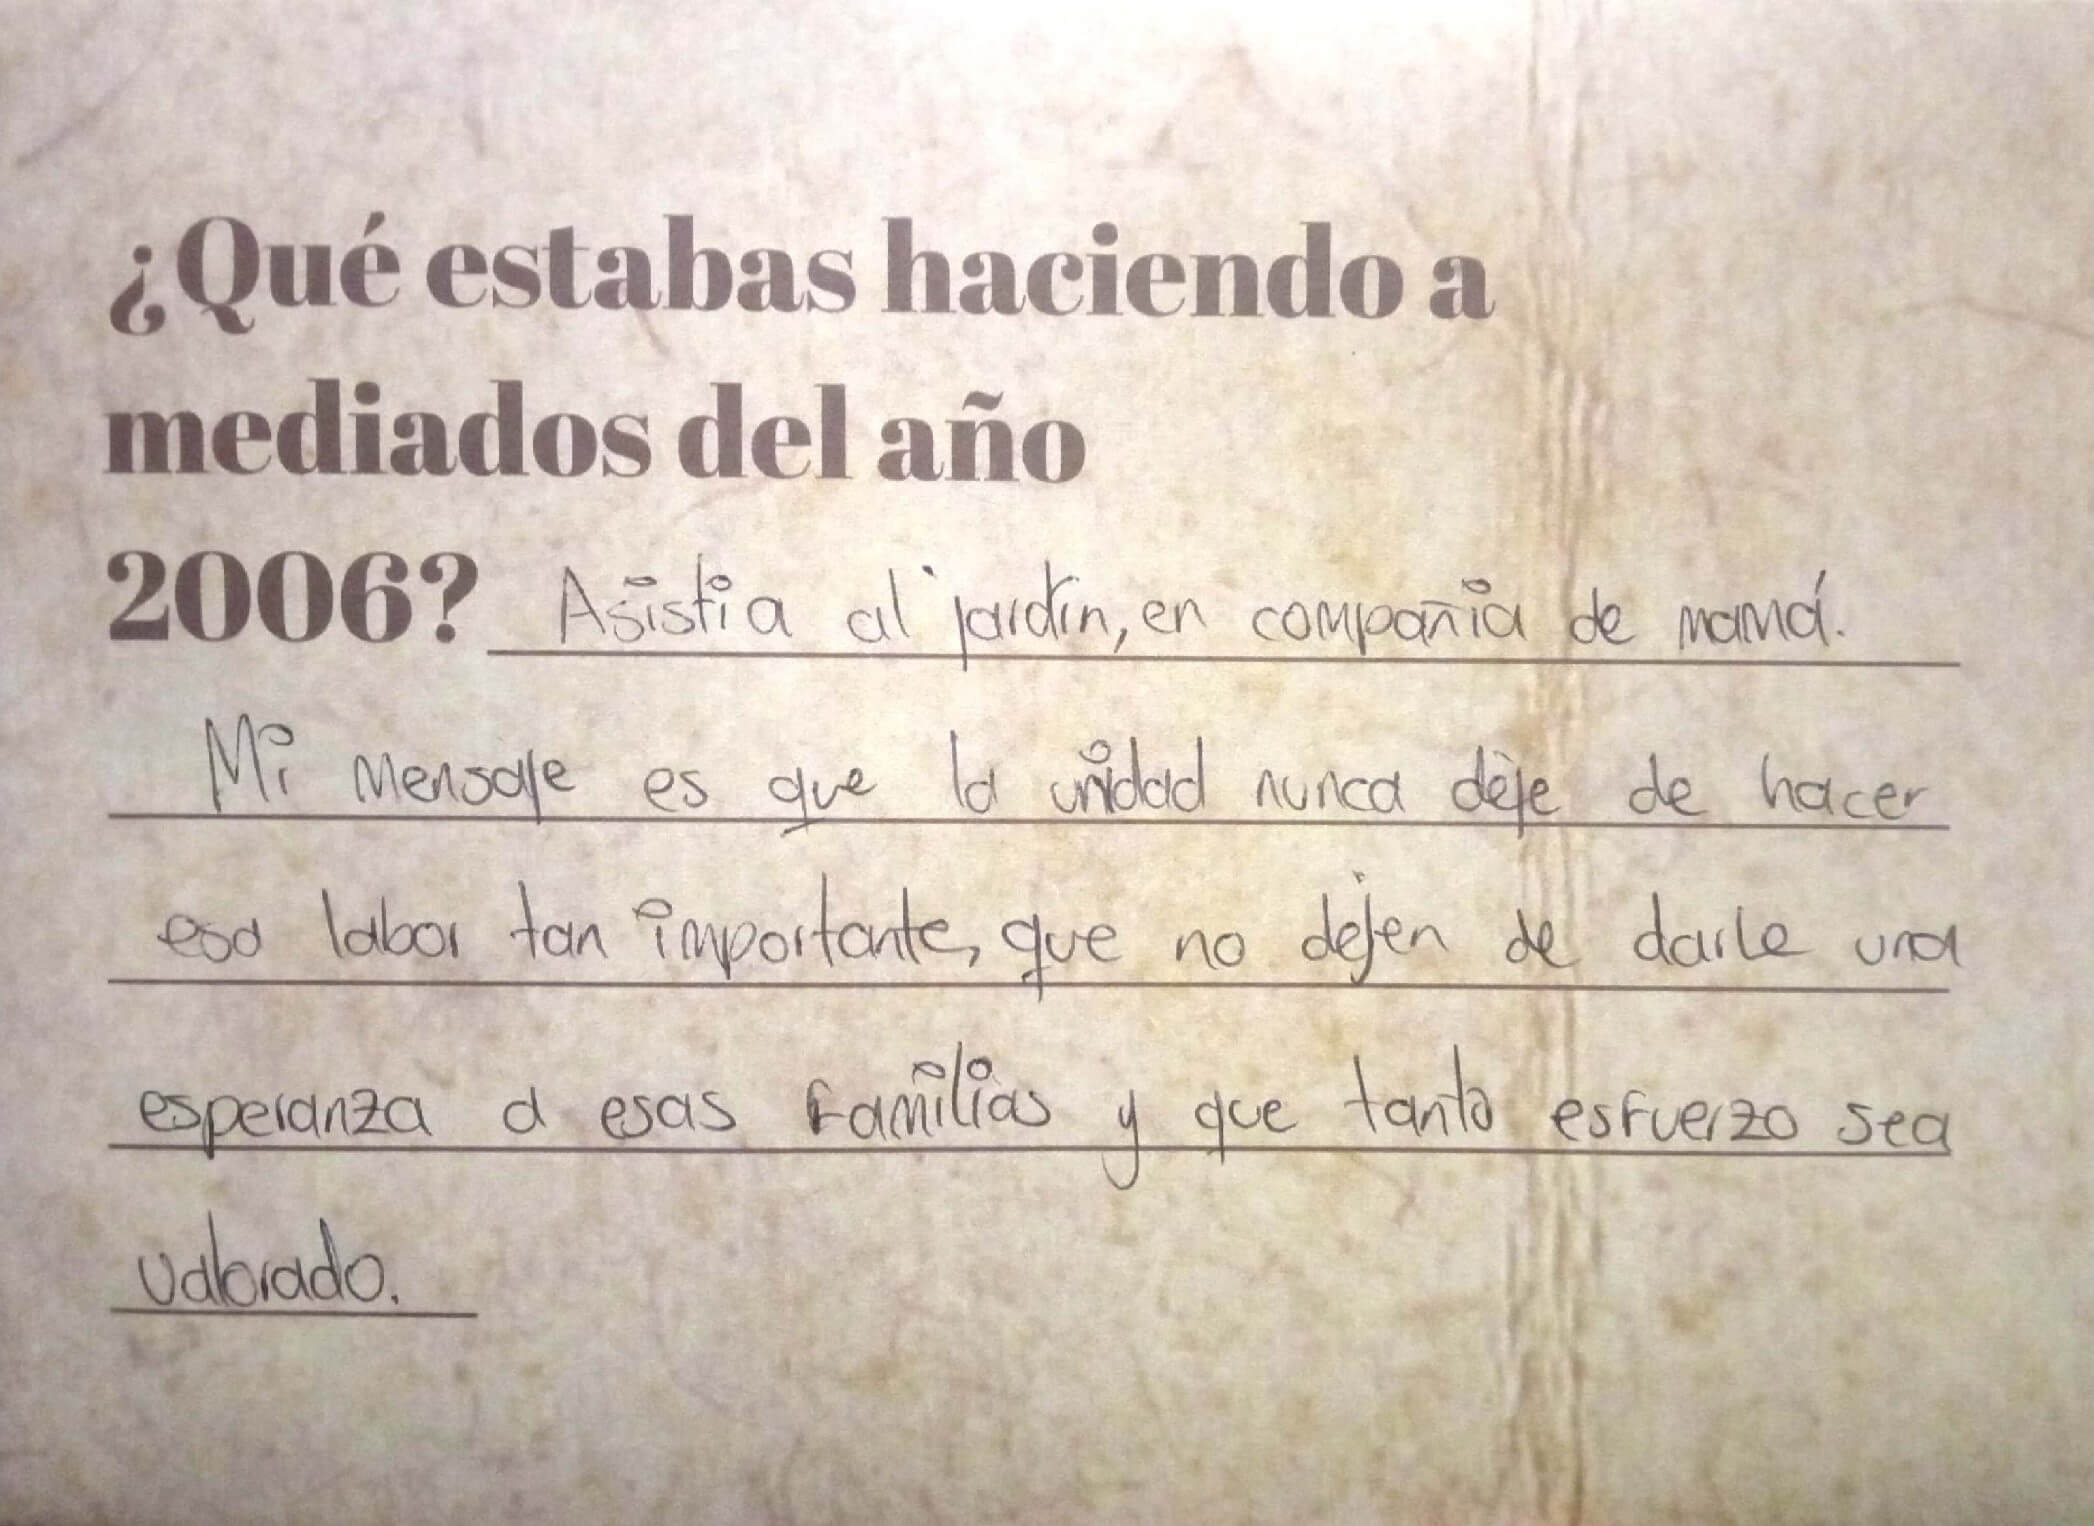 ¿Qué estabas haciendo a
mediados del año
2006? Asistia al jardin, en compañia de mamá.
Mi mensaje es que la unidad nunca deje de hacer
esa labor tan importante, que no dejen de darle una
esperanza a esas familias y que tanto esfuerzo sea
valorado.